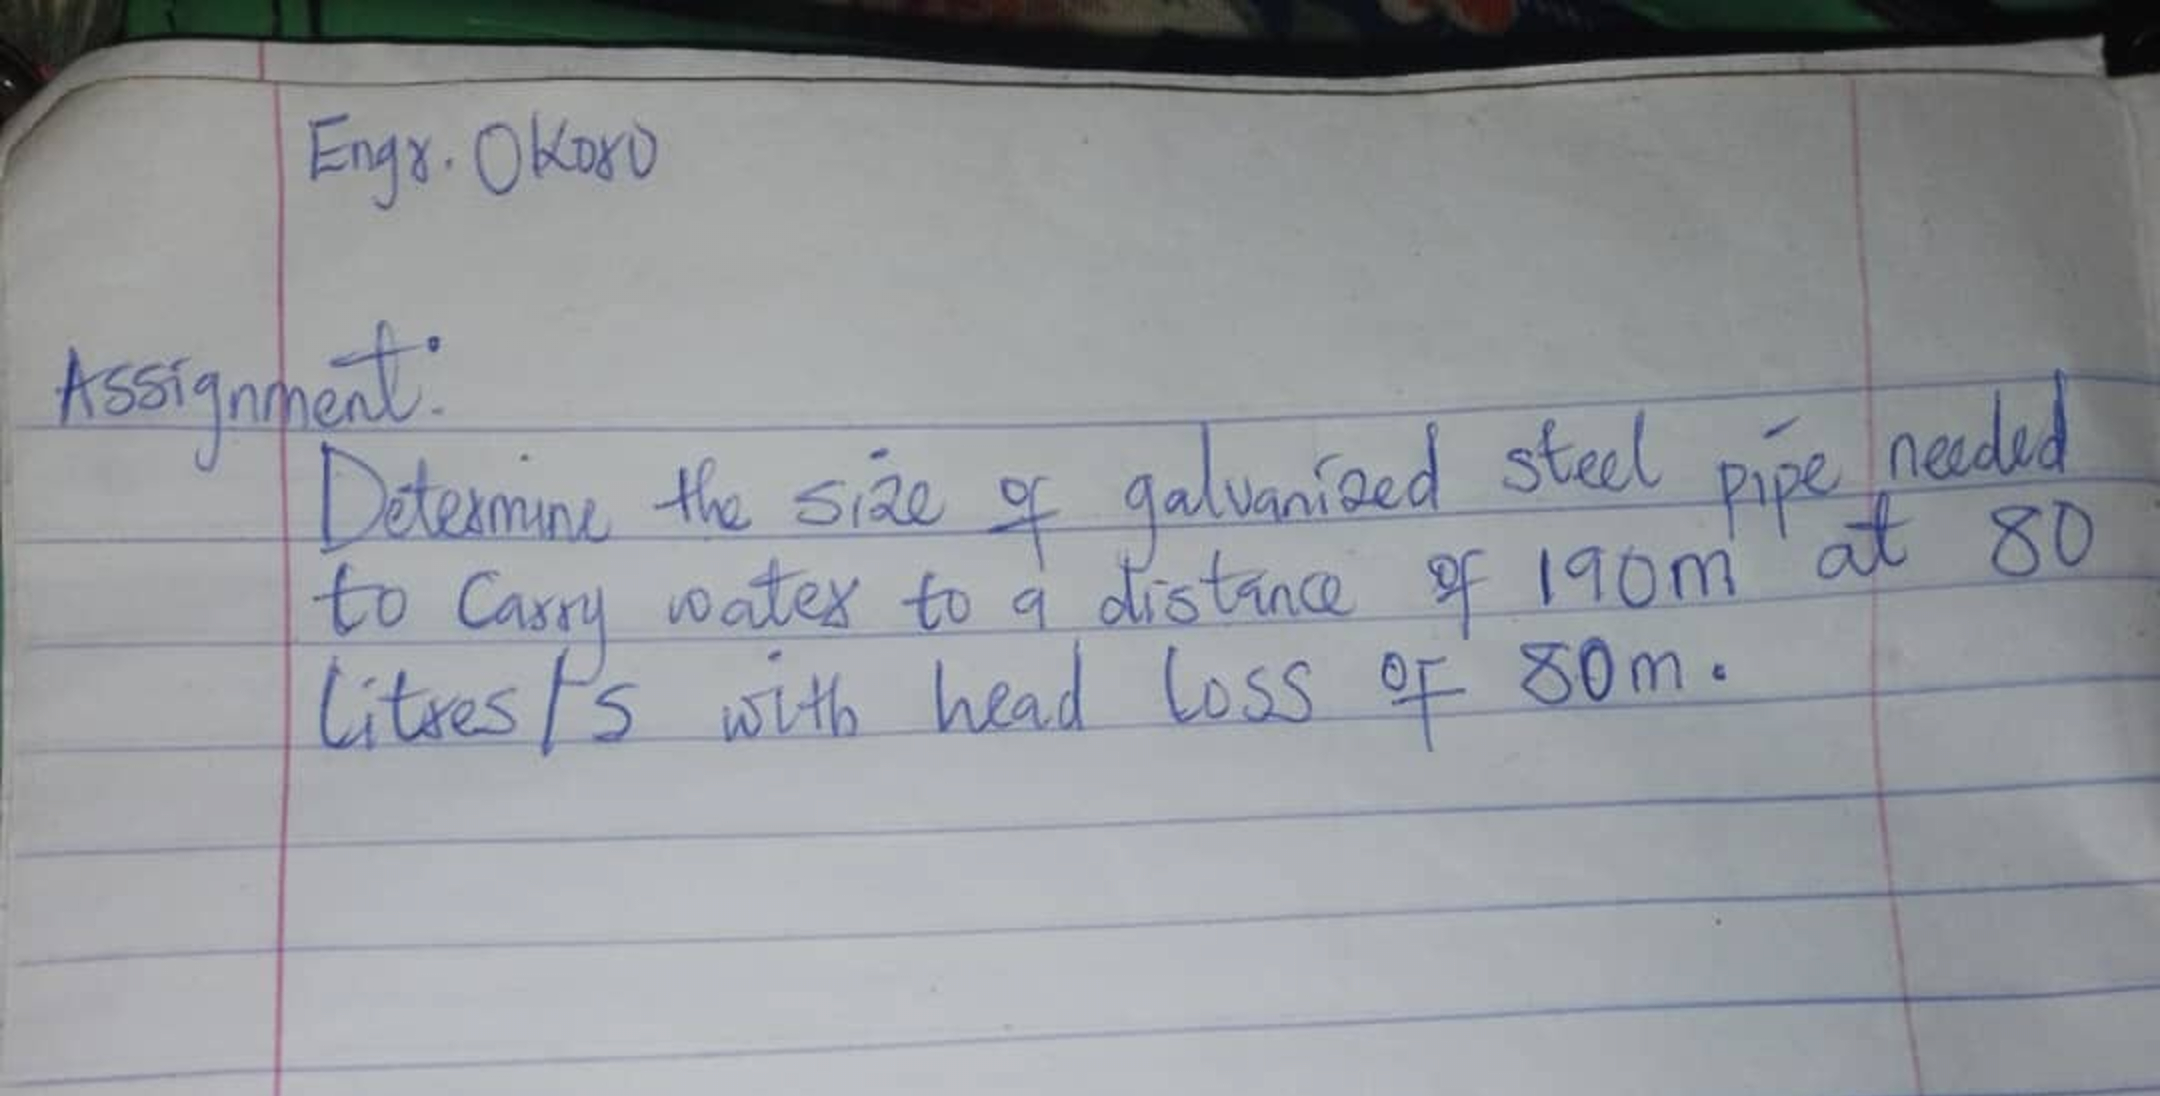 Engr. Okoro
Assignment:
Determine the size of galvanized steel pipe needed
to Carry water to a distance of 190m at 80
litres/s with head loss of 80m.